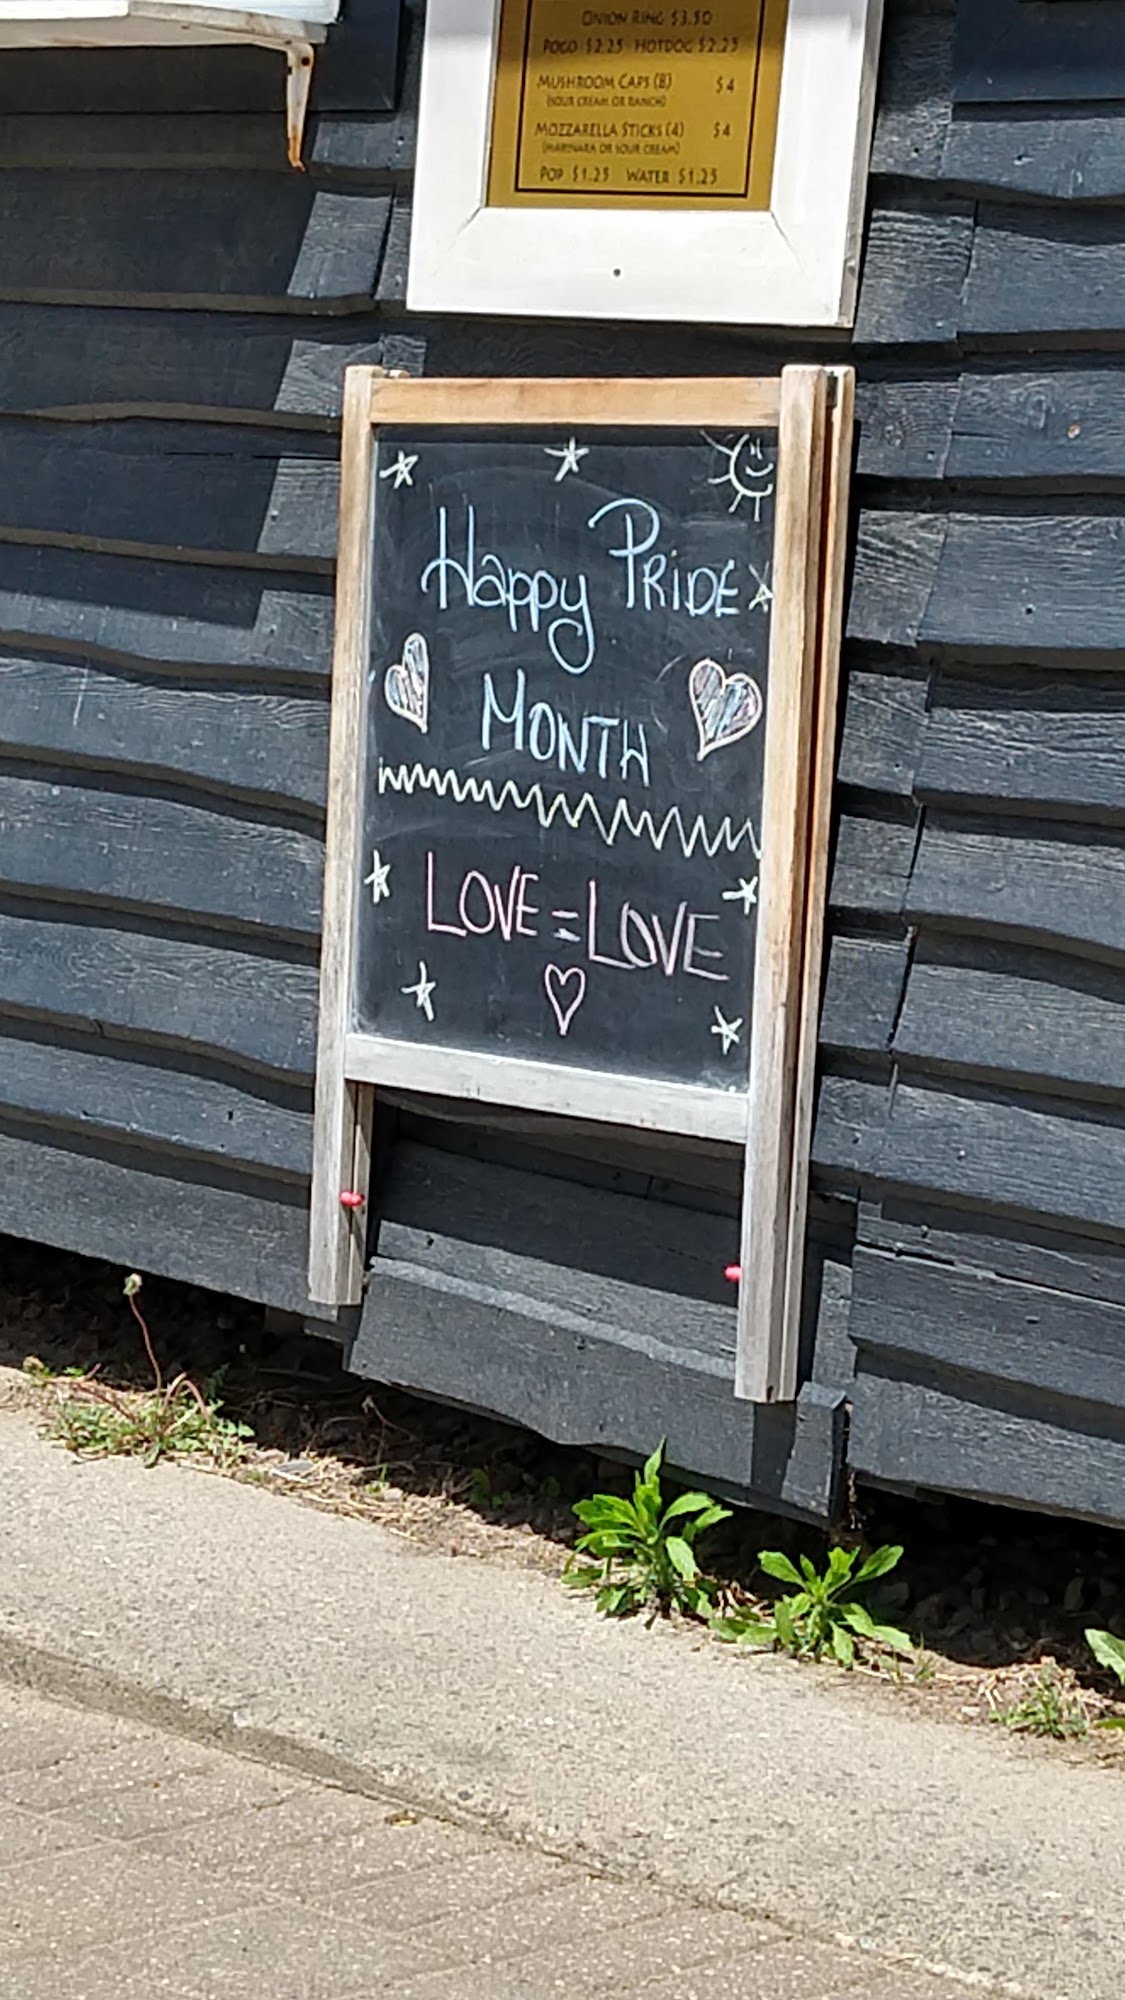 ONION RING $3.50
POGO $2.25 HOTDOG $2.25
MUSHROOM CAPS (8) $4
(SOUR CREAM OR RANCH)
MOZZARELLA STICKS (4) $4
(MARINARA OR SOUR CREAM)
POP $1.25 WATER $1.25
Happy PRiDE
MONTH
LOVE = LOVE